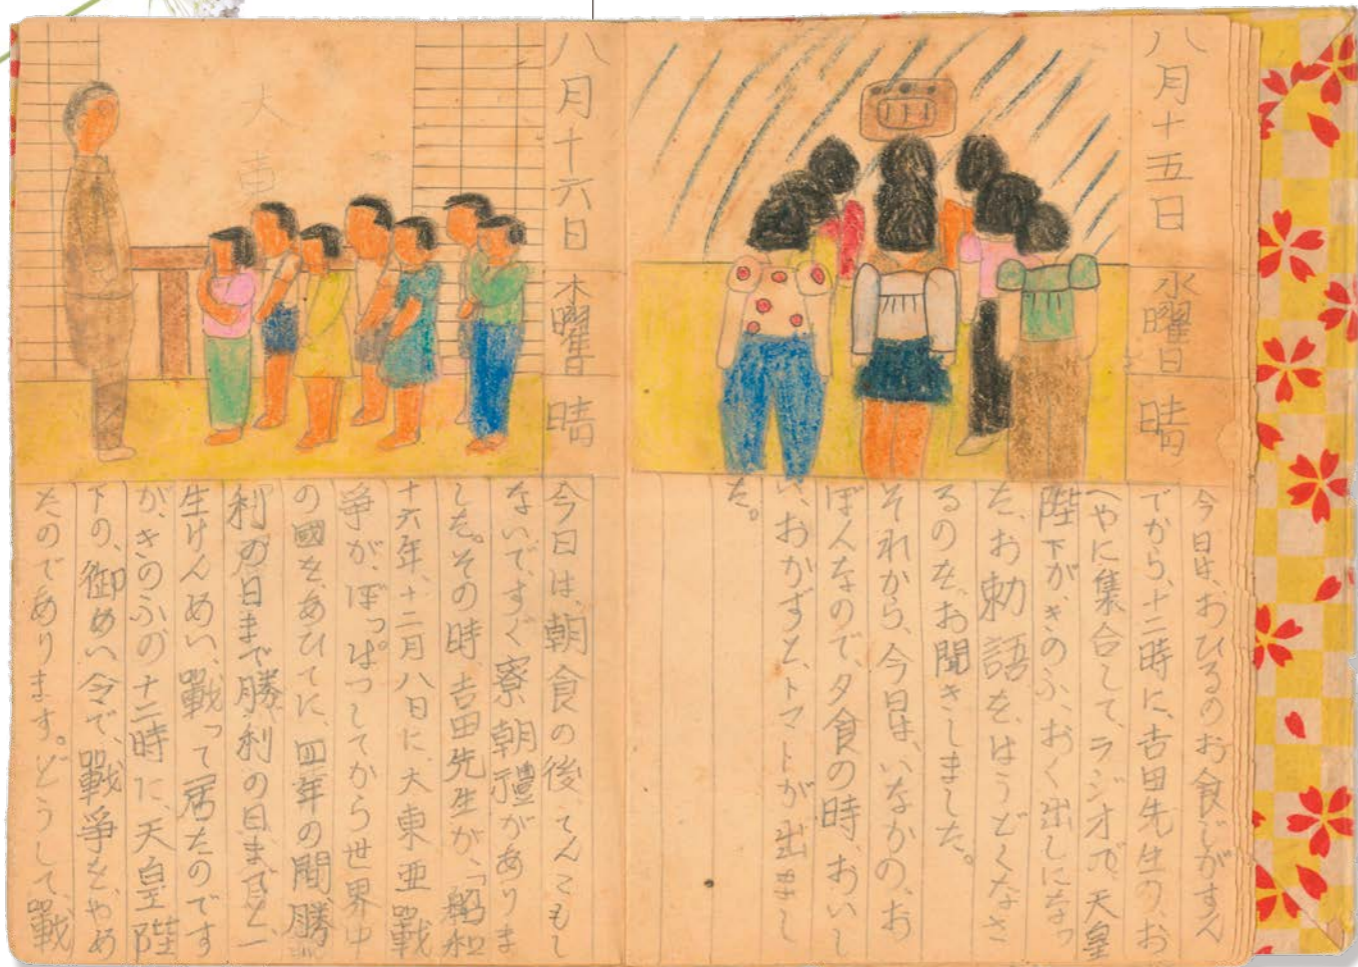 八月十五日
水曜日
晴
今日は、おひるのお食じがすん
でから、十二時に、吉田先生の、お
へやに集合して、ラジオで、天皇
陛下が、きのふ、おく出しになっ
た、お勅語を、はうどくなさ
るのを、お聞きしました。
それから、今日は、いなかの、お
ぼんなので、夕食の時、おいし
い、おかずと、トマトが出まし
た。
八月十六日
木曜日
晴
大東
今日は、朝食の後、てんこもし
ないで、すぐ寮朝禮がありま
した。その時、吉田先生が、「昭和
十六年、十二月八日に、大東亜戰
爭が、ぼっぱつしてから世界中
の國を、あひてに、四年の間、勝
利の日まで勝利の日までと、一
生けんめい、戰って居たのです
が、きのふの十二時に、天皇陛
下の、御めい令で、戰爭を、やめ
たのであります。どうして、戰